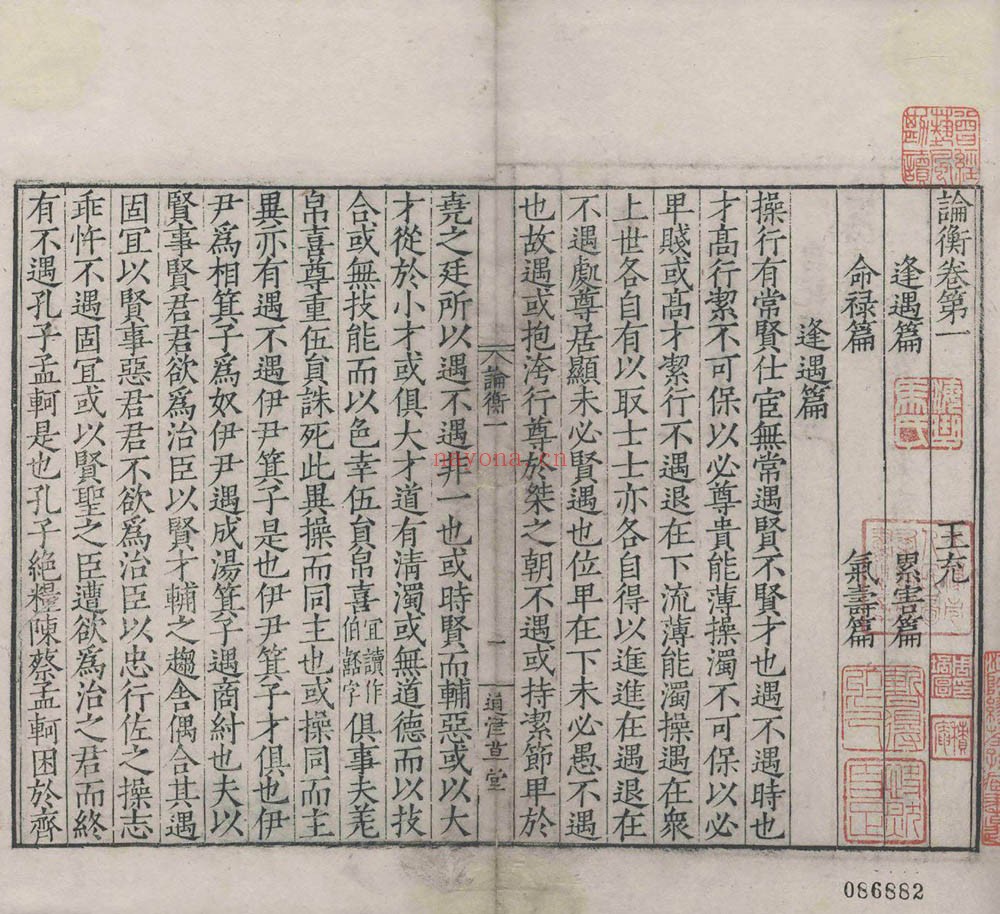 論衡卷第一 王充
逢遇篇 累害篇
命禄篇 氣壽篇
逢遇篇
操行有常賢仕宦無常遇賢不賢才也遇不遇時也
才髙行潔不可保以必尊貴能薄操濁不可保以必
卑賤或髙才潔行不遇退在下流薄能濁操遇在衆
上世各自有以取士士亦各自得以進進在遇退在
不遇處尊居顯未必賢遇也位卑在下未必愚不遇
也故遇或抱洿行尊於桀之朝不遇或持潔節卑於
論衡一 一 通津草堂
堯之廷所以遇不遇非一也或時賢而輔惡或以大
才從於小才或俱大才道有清濁或無道德而以技
合或無技能而以色幸伍員帛喜宜讀作伯嚭字俱事夫差
帛喜尊重伍員誅死此異操而同主也或操同而主
異亦有遇不遇伊尹箕子是也伊尹箕子才俱也伊
尹爲相箕子爲奴伊尹遇成湯箕子遇商紂也夫以
賢事賢君君欲爲治臣以賢才輔之趨舍偶合其遇
固冝以賢事惡君君不欲爲治臣以忠行佐之操志
乖忤不遇固冝或以賢聖之臣遭欲爲治之君而終
有不遇孔子孟軻是也孔子絶糧陳蔡孟軻困於齊
nayona.cn
086882